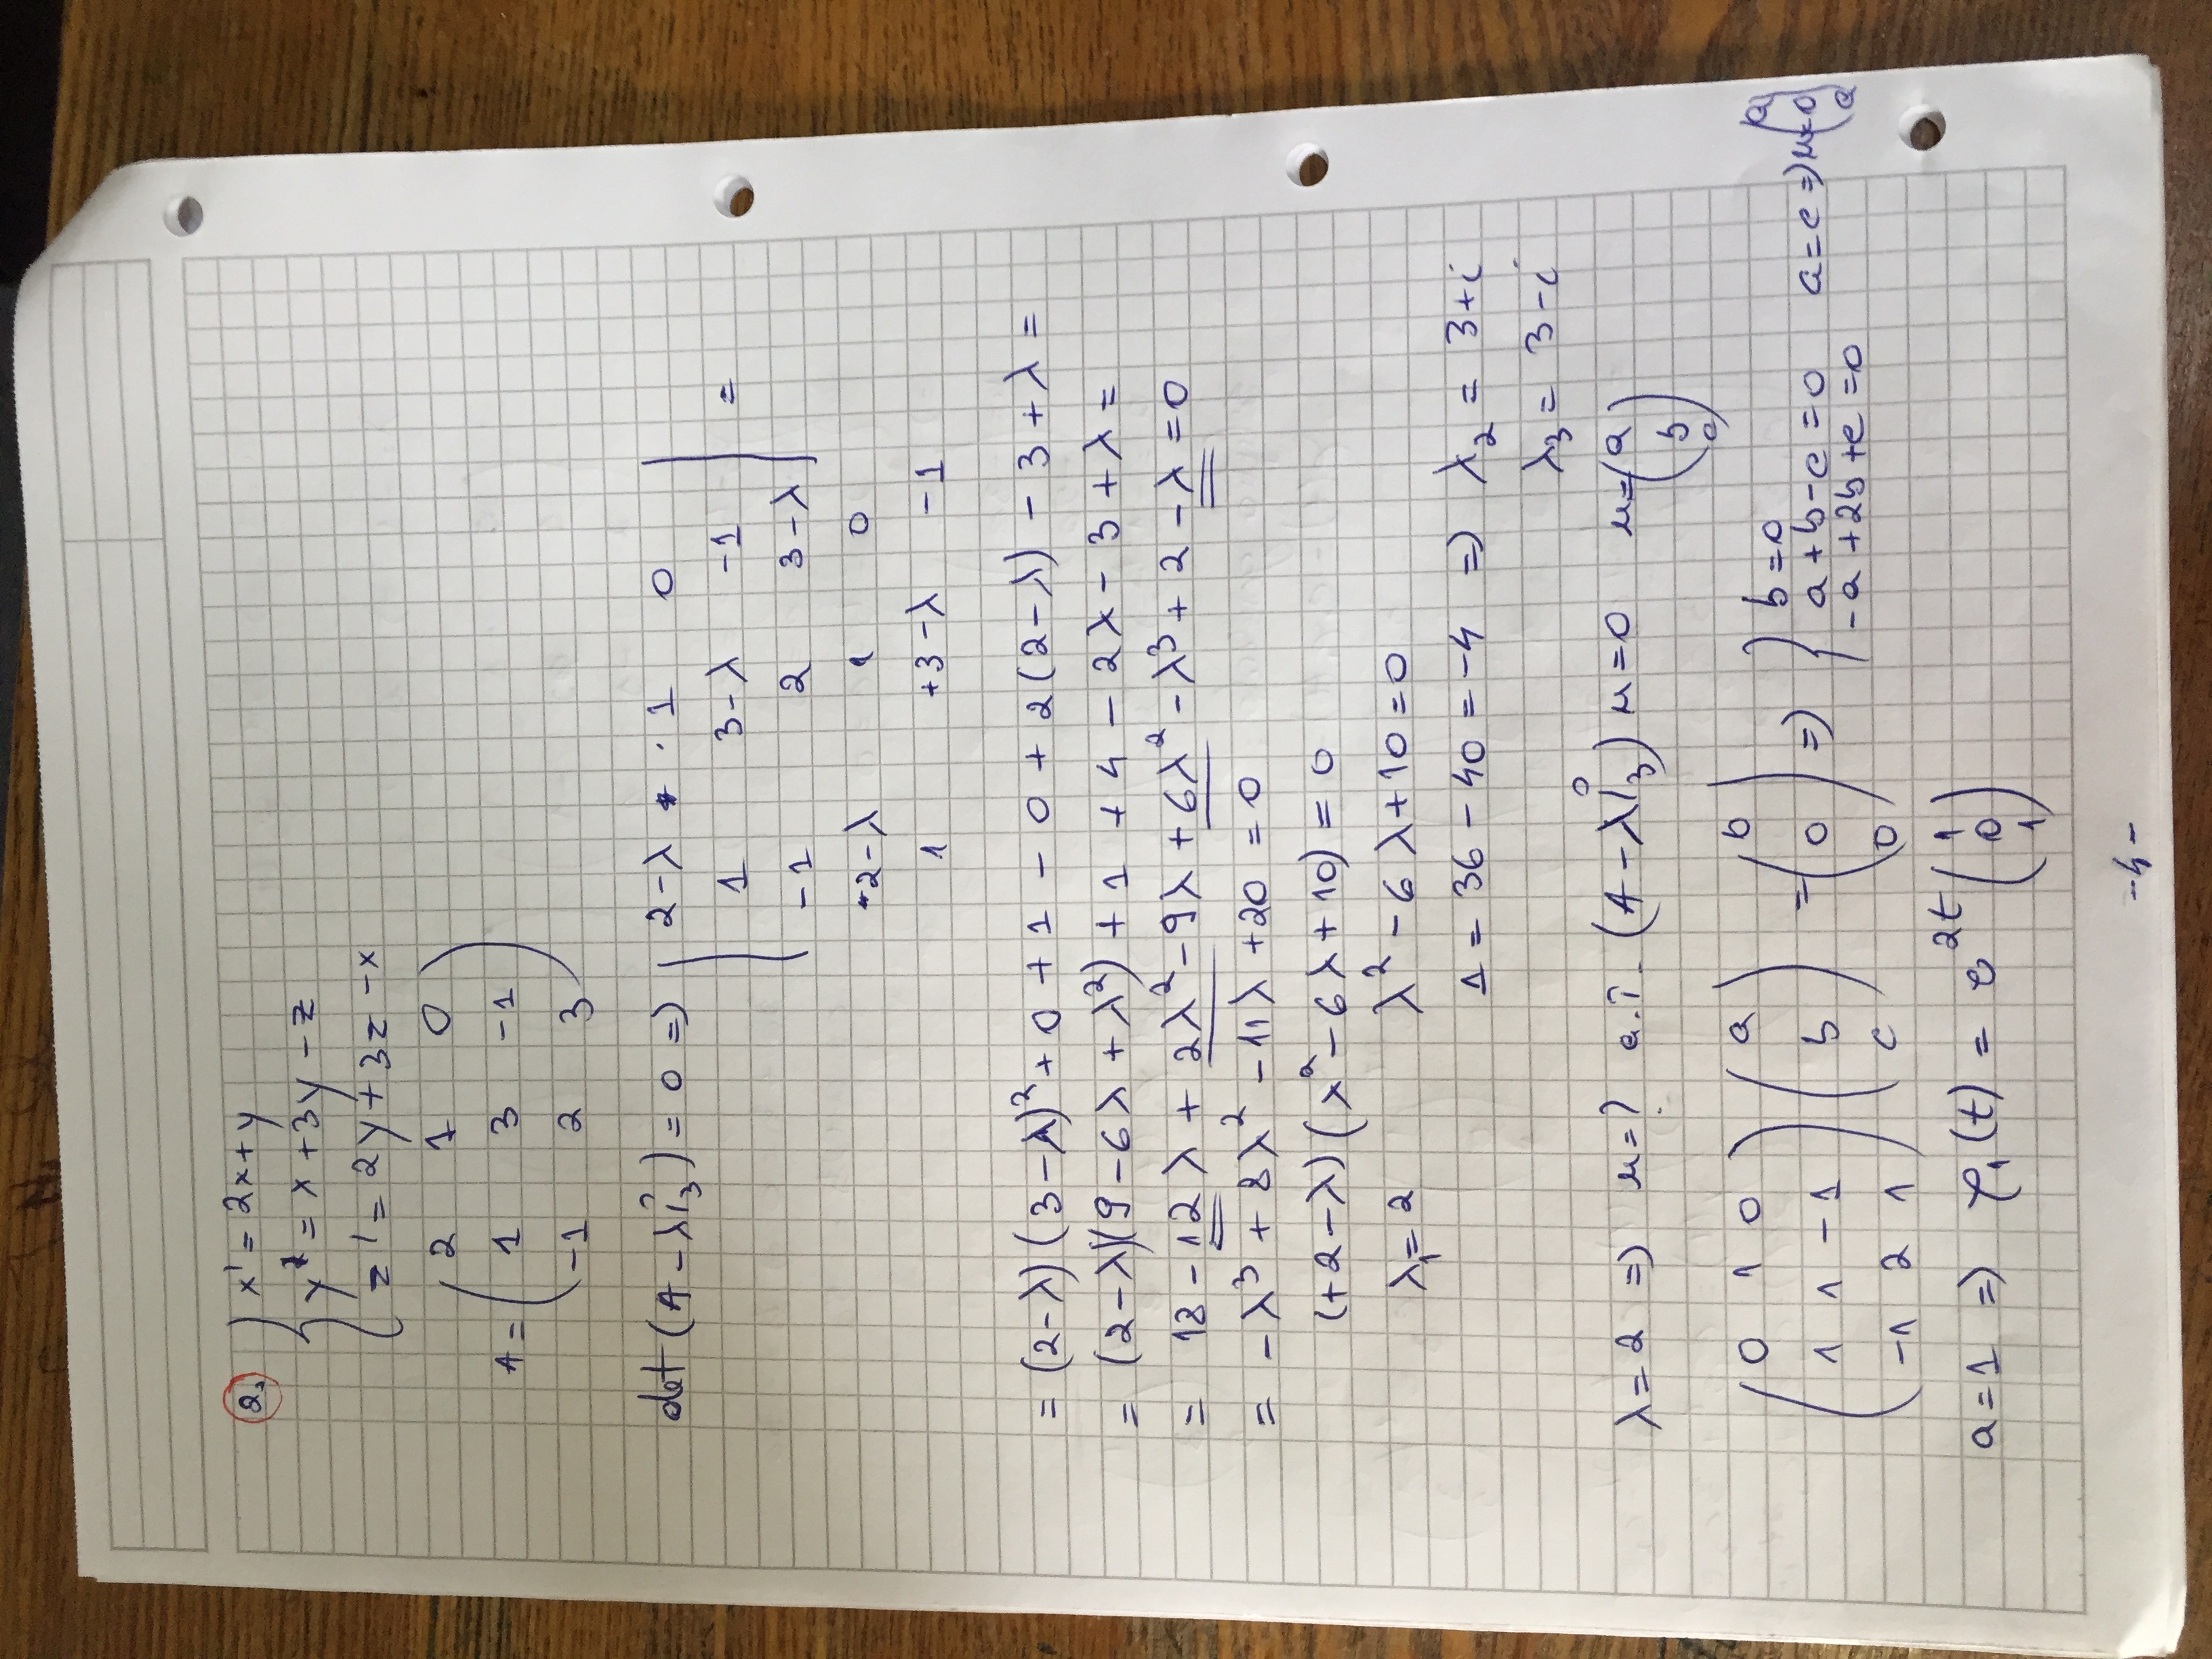 2.
x' = 2x + y
y' = x + 3y - z
z' = 2y + 3z - x
A = ( 2 1 0
1 3 -1
-1 2 3 )
det (A - λI₃) = 0 => | 2-λ · 1 0
1 3-λ -1 | =
-1 2 3-λ
2-λ 1 0
1 +3-λ -1
= (2-λ)(3-λ)² + 0 + 1 - 0 + 2(2-λ) - 3 + λ =
= (2-λ)(9 - 6λ + λ²) + 1 + 4 - 2λ - 3 + λ =
= 18 - 12λ + 2λ² - 9λ + 6λ² - λ³ + 2 - λ = 0
= -λ³ + 8λ² - 11λ + 20 = 0
(+2-λ)(λ² - 6λ + 10) = 0
λ₁ = 2 λ² - 6λ + 10 = 0
1 = 36 - 40 = -4 => λ₂ = 3+i
λ₃ = 3-i
λ = 2 => u = ? a.î. (A - λI₃) u = 0 u = ( a
b
c )
( 0 1 0 ) ( a ) = ( 0 ) => { b = 0
1 1 -1 b 0 a + b - c = 0 a = c => u = ( a 0 a )
-1 2 1 c 0 -a + 2b + c = 0
a = 1 => φ₁(t) = e²ᵗ ( 1
0
1 )
-4-